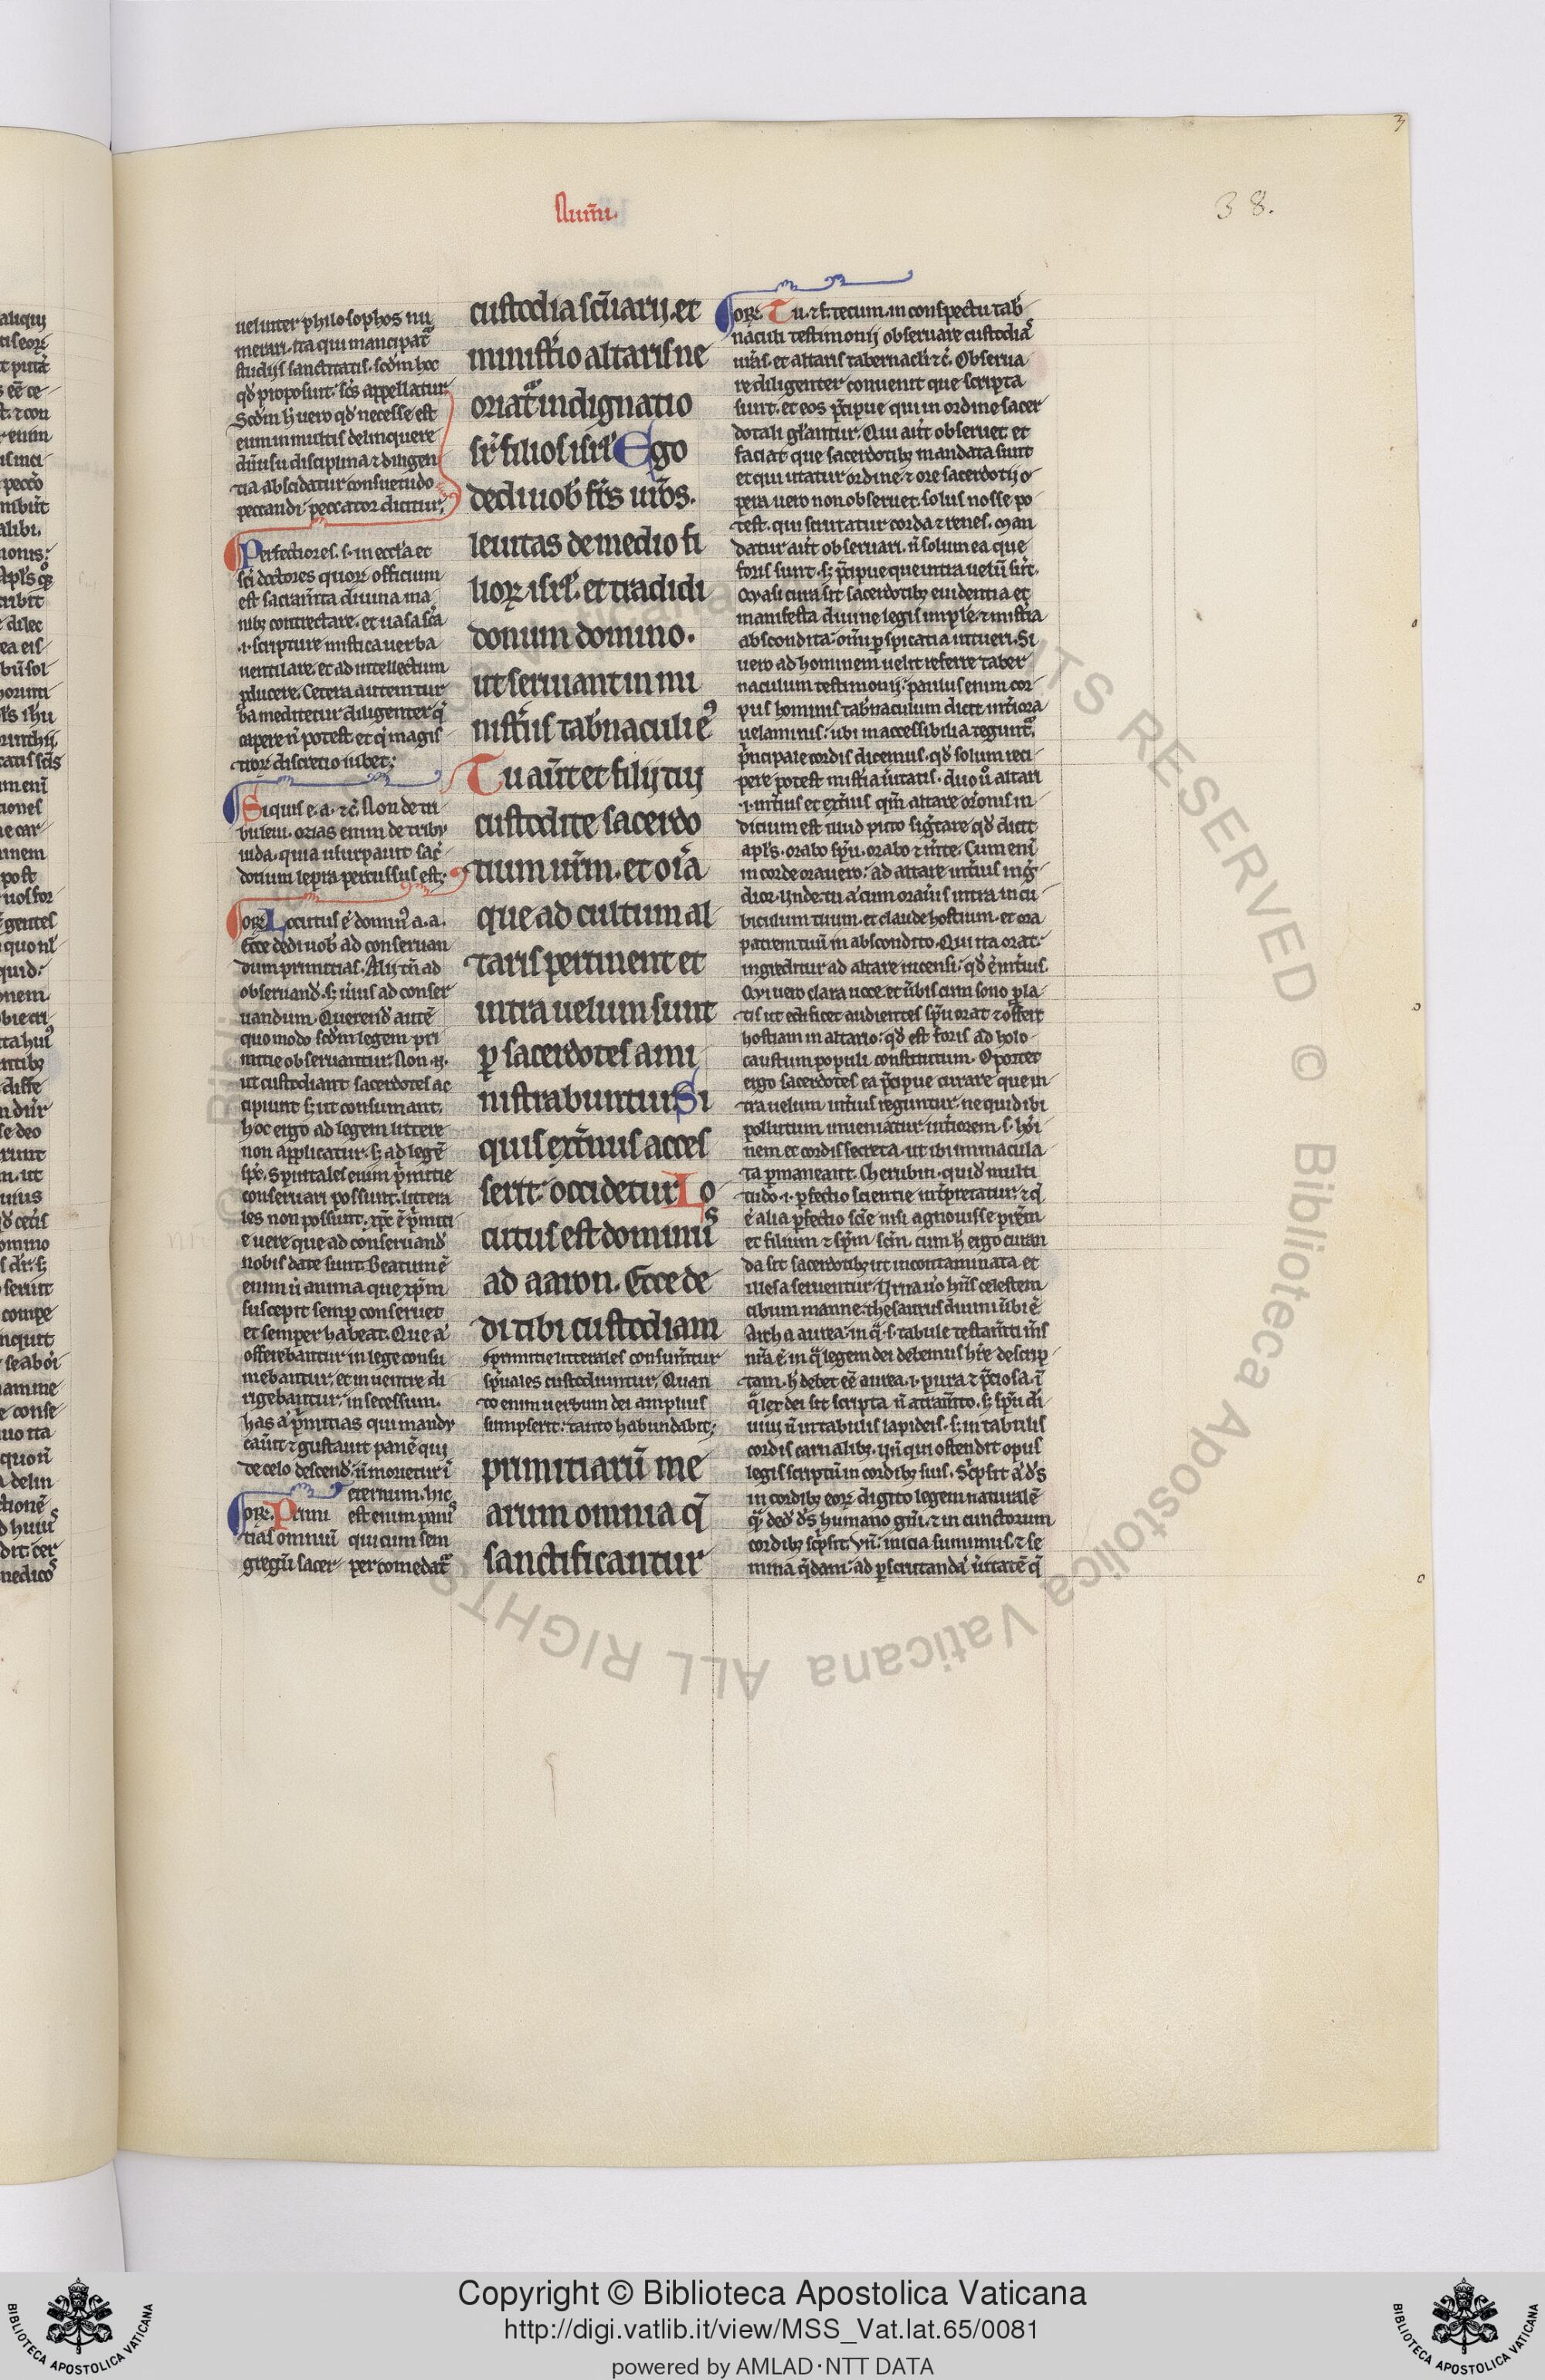 Num̄i.
38.
uel inter philosophos nu
merari. ita qui mancipat᷑
studiis sanctitatis. scd̄m hoc
qd̓ proposuit. sc̄s appellatur.
Scd̄m h̓ uero qd̓ necesse est
eum in multis delinquere
diu usu disciplina ⁊ diligen
tia abscidatur consuetudo
peccandi. peccator dicitur.
Perfectiores. s. in eccl̓a et
sc̄i doctores quoꝝ officium
est sacram̄ta diuina ma
nibꝫ contrectare. et uasa sc̄a
.i. scripture mistica uerba
uentilare. et ad intellectum
ꝓducere. Cetera autem tur
ba meditetur diligenter qd̓
capere n̄ potest. et qd̓ magis
tioꝝ discretio iubet.
Siquis e. a. ⁊c̄. Non de tri
bu leui. ozias enim de tribu
iuda. quia usurpauit sac̓
dotium lepra percussus est.
oꝝ. Locutus ē domin᷒ a. a.
Ecce dedi uob̓ ad conseruan
dum primitias. Alij tn̄ ad
obseruand̓. sꝫ uiuis ad conser
uandum. Querend̓ autē
quomodo scd̄m legem pri
mitie obseruantur. Non .n.
ut custodiant sacerdotes ac
cipiunt sꝫ ut consumant.
hoc ergo ad legem littere
non applicatur. sꝫ ad legē
sp̄c. Spiritales enim p̓mitie
conseruari possunt. littera
les non possunt. xp̄c ē p̓miti
e uere que ad conseruand̓
nobis date sunt. Beatum ē
enim ū anima que xp̄m
suscepit semꝑ conseruet
et semper habeat. Que a̓
offerebantur in lege consu
mebantur. et in uentre di
rigebantur. in secessum.
has a̓ p̓mitias qui mandu
cau̓it ⁊ gustauit panē qui
de celo descend̓. n̄ morietur ī
eternum. hic
est enim pani᷒
qui cum sem
per comedat᷑
oꝝ. Primi
tias omniū
gregū sacer
custodia sc̄uarij. et
minist̓io altaris ne
oriat᷑ indignatio
sr̄ filios isrl̓ Ego
dedi uob̓ fr̄s ur̄os.
leuitas de medio fi
lioꝝ isrl̓. et tradidi
donum domino.
ut seruiant in mi
nist̓iis tab̓naculi e᷒
Tu aūt et filij tui
custodite sacerdo
tium ur̄m. et oīa
que ad cultum al
taris pertinent et
intra uelum sunt
ꝑ sacerdotes ami
nistrabuntur Si
quis ext̓nus acces
serit. occidetur Lo
cutus est dominus
ad aaron. Ecce de
di tibi custodiam
primitie litterales consum̄tur
sp̄uales custodiuntur. Quan
to enim uerbum dei amplius
sumpserit. tanto habundabit.
primitiarū me
arum omnia q̄
sanctificantur
oꝝ. Tu. ⁊ f. tecum. in conspectu tab̓
naculi testimonij obseruare custodiā
ur̄as. et altaris tabernacl̓i ⁊c̄. Obserua
re diligenter conuenit que scripta
sunt. et eos p̄cipue qui in ordine sacer
dotali gl̓antur. Qui aūt obseruet et
faciat que sacerdotibꝫ mandata sunt
et qui utatur ordine ⁊ ore sacerdotij o
pera uero non obseruet. solus nosse po
test. qui scrutatur corda ⁊ renes. Man
datur aūt obseruari. n̄ solum ea que
foris sunt. sꝫ p̄cipue que intra uelū sūt.
Quasi cura sit sacerdotibꝫ euidentia et
manifesta diuine legis imple̓ ⁊ mist̓ia
abscondita. om̄i ꝑspicatia intueri. Si
uero ad hominem uelit referre taber
naculum testimonij. paulus enim cor
pus hominis tab̓naculum dicit int̓iora
uelaminis. ubi inaccessibilia tegunt᷑.
p̓ncipale cordis dicemus. qd̓ solum reci
pere potest mist̓ia ūitatis. duo u̓ altari
.i. int̓ius et ext̓ius qm̄ altare or̄onis in
dicium est illud puto sig̓tare qd̓ dicit
apl̓s. orabo sp̄u. orabo ⁊ m̄te. Cum enī
in corde orauero. ad altare int̓ius ing̓
dior. Unde. tu a̓ cum oraūis intra in cu
biculum tuum. et claude hostium. et ora
patrem tuū in abscondito. Qui ita orat.
ingreditur ad altare incensi. qd̓ ē int̓ius.
Qui uero clara uoce. et ūbis cum sono ꝓla
tis ut edificet audientes sp̄u orat ⁊ offert
hostiam in altario. qd̓ est foris ad holo
caustum populi constitutum. Oportet
ergo sacerdotes ea p̄cipue curare que in
tra uelum int̓ius teguntur. ne quid ibi
pollutum inueniatur int̓iorem. s. ho̓i
nem et cordis secreta. ut ibi immacula
ta ꝑmaneant. Cherubin. quid̓ multi
tudo .i. ꝑfectio scientie int̓pretatur. ⁊ q̄
ē alia ꝑfectio scīe nisi agnouisse pr̄em
et filium ⁊ sp̄m scm̄. cum h̓ ergo curan
da sit sacerdotibꝫ ut incontaminata et
illesa seruentur. Urna u̓o hn̄s celestem
cibum manne. thesaurus diuini ūbi ē.
Archa aurea. in q̄. s. tabule testam̄ti m̄s
nr̄a ē. in q̄ legem dei debemus hr̄e descrip
tam. h̓ debet eē aurea .i. pura ⁊ p̄ciosa. ī
q̄ lex dei sit scripta n̄ atram̄to. sꝫ sp̄u di
uiui n̄ in tabulis lapideis. sꝫ in tabulis
cordis carnalibꝫ. un̄ qui ostendit opus
legis scriptū in cordibꝫ suis. Sc̓psit a̓ d̓s
in cordibꝫ eoꝝ digito legem naturalē
q̄ ded̓ d̓s humano gn̄i. ⁊ in cunctorum
cordibꝫ sc̓psit. Vn̄. inicia sumimus. ⁊ se
mina q̄dam. ad ꝑscrutandā ūitatē q̄
Copyright © Biblioteca Apostolica Vaticana
http://digi.vatlib.it/view/MSS_Vat.lat.65/0081
powered by AMLAD·NTT DATA